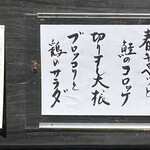 春キャベツと
鮭のコロッケ
切り干し大根
ブロッコリと
鶏のサラダ